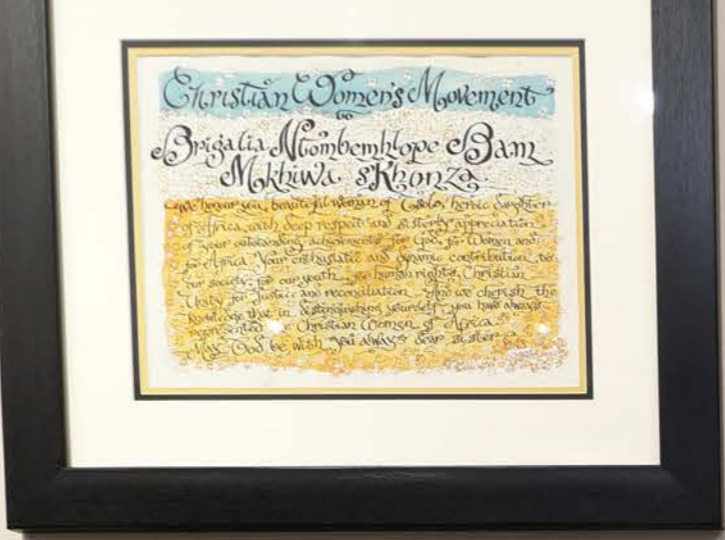 Christian Women's Movement
to
Brigalia Ntombemhlope Bam
Mkhiwa sKhonza
We honour you, beautiful woman of Tsolo, heroic daughter
of Africa, with deep respect and sisterly appreciation
of your outstanding achievements for God, for Women and
for Africa Your enthusiastic and dynamic contribution to
our society, for our youth for human rights, Christian
Unity for Justice and reconciliation And we cherish the
knowledge that in distinguishing yourself you have always
represented Christian Women of Africa
May God be with you always dear sister